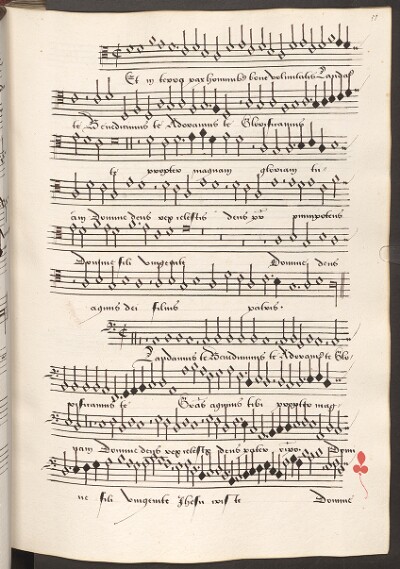 Et in terra pax hominibus bone voluntatis Laudam⁹
te Benedicimus te Adoramus te Glorificamus
te propter magnam gloriam tu-
am Domine deus rex celestis deus pr̄ omnipotens
Domine fili unigenite Domine deus
agnus dei filius patris.
Laudamus te Benedicimus te Adoram⁹ te Glo-
rificamus te Gr̄as agimus tibi propter mag
nam Domine deus rex celestis deus pater Domi
ne fili unigenite Jhesu te Domine